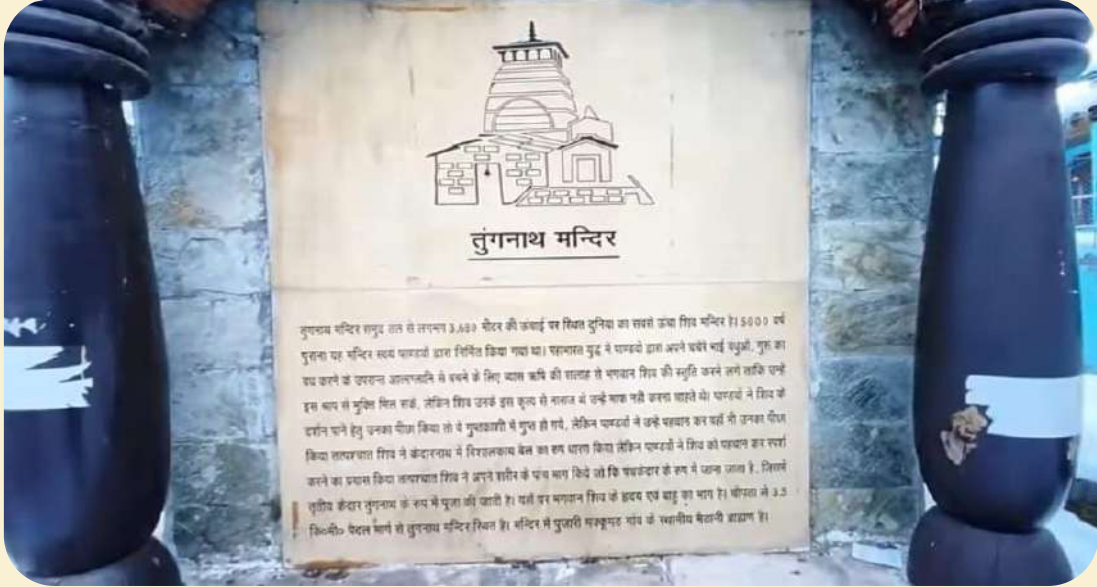 तुंगनाथ मन्दिर
तुंगनाथ मन्दिर समुद्र तल से लगभग 3,680 मीटर की ऊंचाई पर स्थित दुनिया का सबसे ऊंचा शिव मन्दिर है। 5000 वर्ष
पुराना यह मन्दिर स्वयं पाण्डवों द्वारा निर्मित किया गया था। महाभारत युद्ध में पाण्डवों द्वारा अपने चचेरे भाई बंधुओं, गुरू का
वध करने के उपरान्त आत्मग्लानि से बचने के लिए व्यास ऋषि की सलाह से भगवान शिव की स्तुति करने लगे ताकि उन्हें
इस श्राप से मुक्ति मिल सके, लेकिन शिव उनके इस कृत्य से नाराज थे उन्हें माफ नहीं करना चाहते थे। पाण्डवों ने शिव के
दर्शन पाने हेतु उनका पीछा किया तो वे गुप्तकाशी में गुप्त हो गये, लेकिन पाण्डवों ने उन्हें पहचान कर वहाँ भी उनका पीछा
किया तत्पश्चात शिव ने केदारनाथ में विशालकाय बैल का रूप धारण किया लेकिन पाण्डवों ने शिव को पहचान कर स्पर्श
करने का प्रयास किया तत्पश्चात शिव ने अपने शरीर के पांच भाग किये जो कि पंचकेदार के रूप में जाना जाता है, जिसमें
तृतीय केदार तुंगनाथ के रूप में पूजा की जाती है। यहाँ पर भगवान शिव के हृदय एवं बाहु का भाग है। चोपता से 3.5
कि०मी० पैदल मार्ग से तुंगनाथ मन्दिर स्थित है। मन्दिर में पुजारी मक्कूमठ गांव के स्थानीय मैठानी ब्राह्मण है।